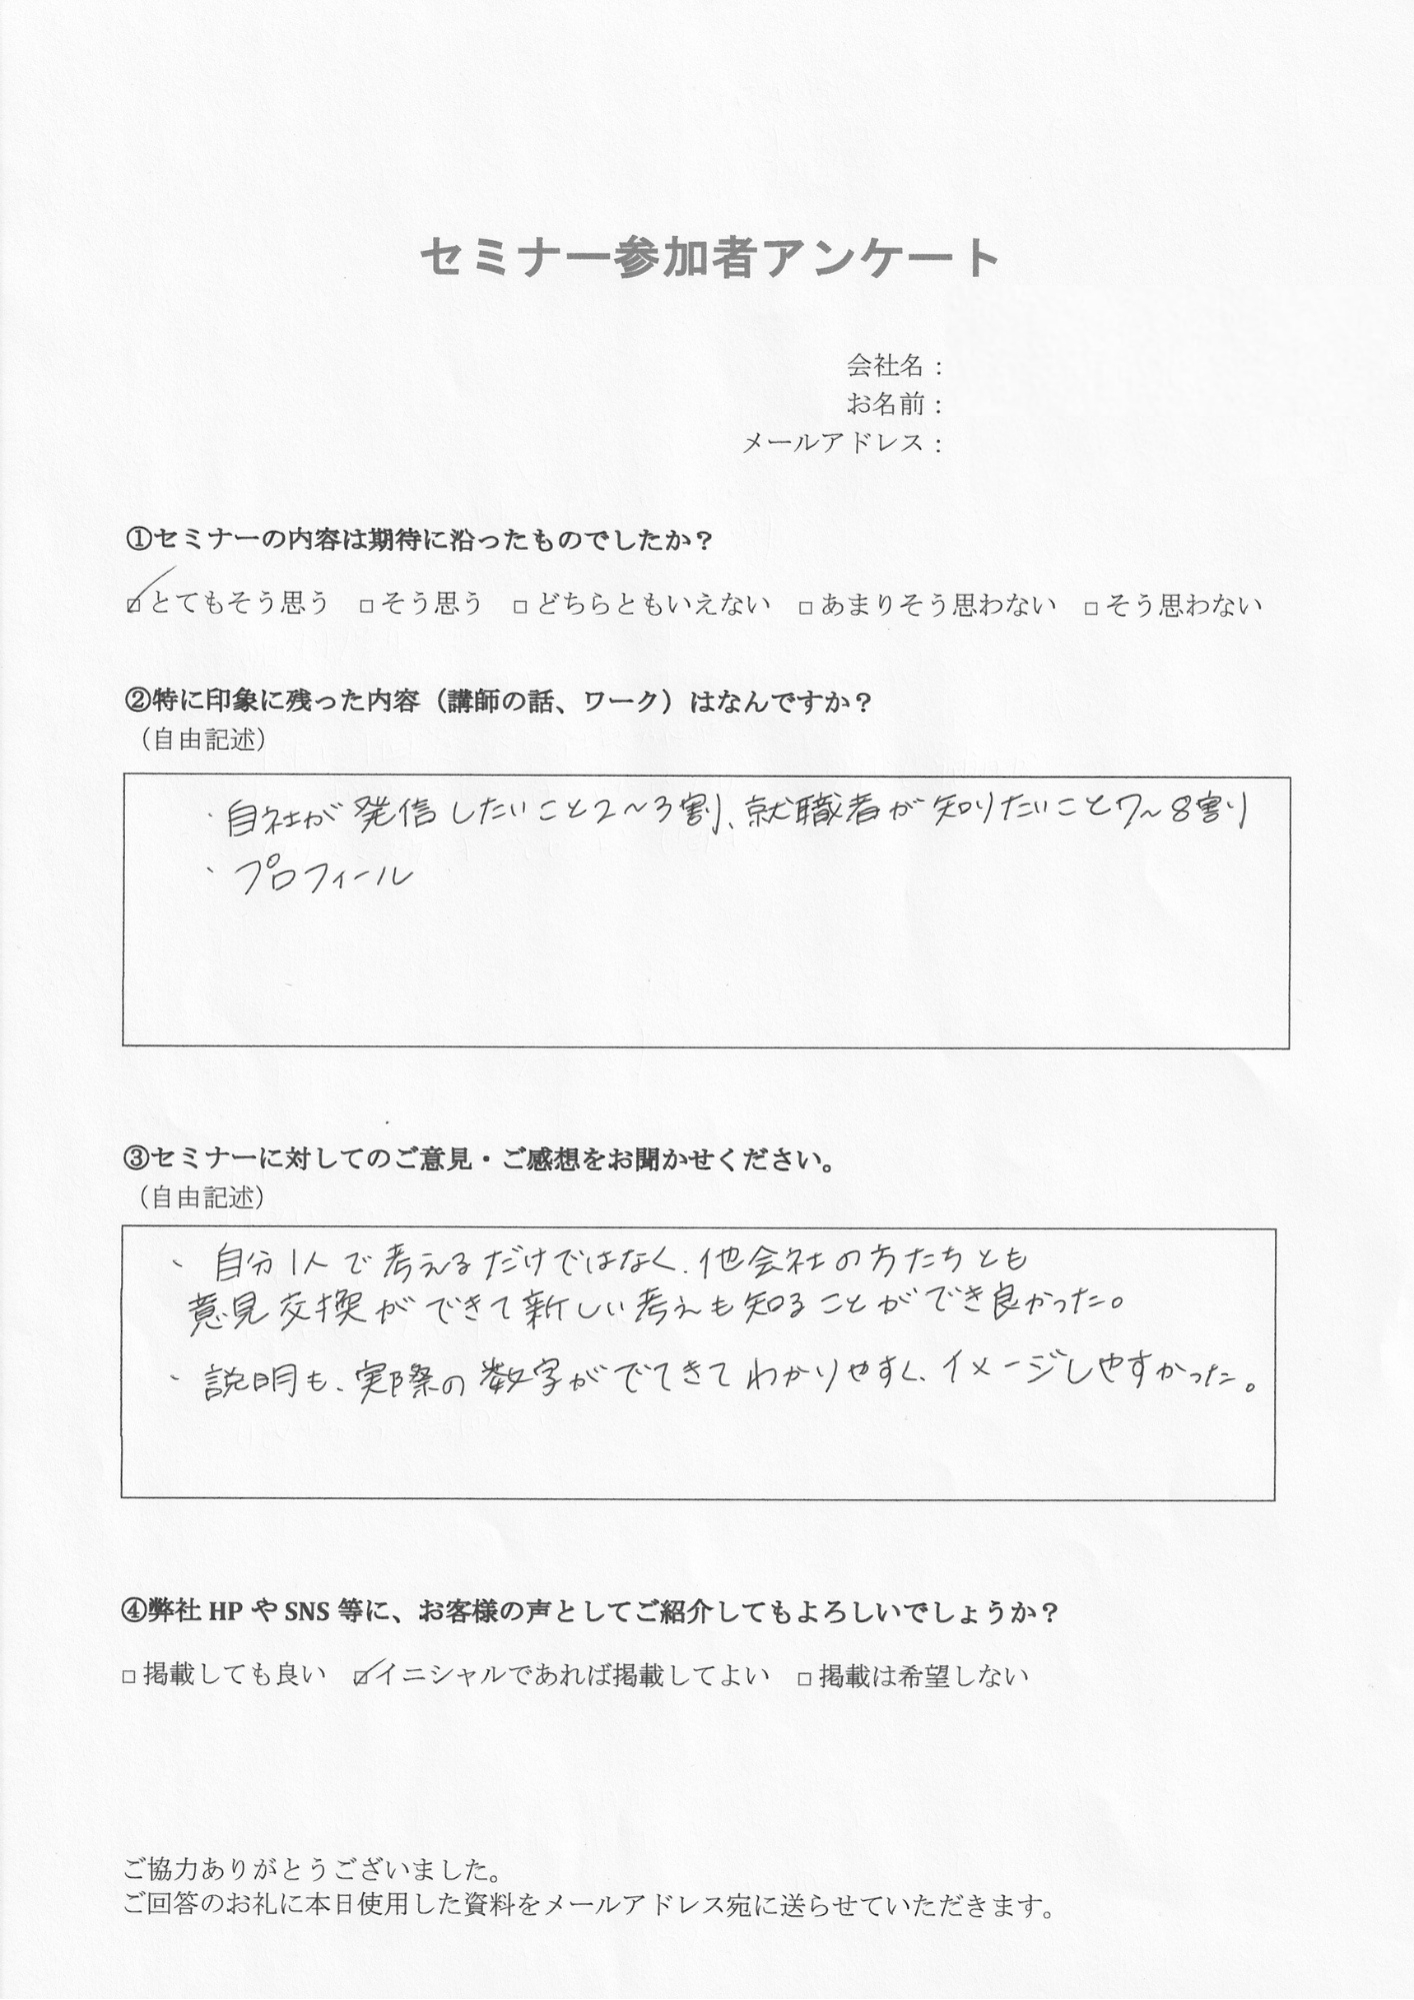 セミナー参加者アンケート
会社名：
お名前：
メールアドレス：
①セミナーの内容は期待に沿ったものでしたか？
☑とてもそう思う □そう思う □どちらともいえない □あまりそう思わない □そう思わない
②特に印象に残った内容（講師の話、ワーク）はなんですか？
（自由記述）
・自社が発信したいこと2〜3割、就職者が知りたいこと7〜8割
・プロフィール
③セミナーに対してのご意見・ご感想をお聞かせください。
（自由記述）
・自分1人で考えるだけではなく、他会社の方たちとも
意見交換ができて新しい考えも知ることができ良かった。
・説明も、実際の数字がでてきてわかりやすく、イメージしやすかった。
④弊社 HP や SNS 等に、お客様の声としてご紹介してもよろしいでしょうか？
□掲載しても良い ☑イニシャルであれば掲載してよい □掲載は希望しない
ご協力ありがとうございました。
ご回答のお礼に本日使用した資料をメールアドレス宛に送らせていただきます。